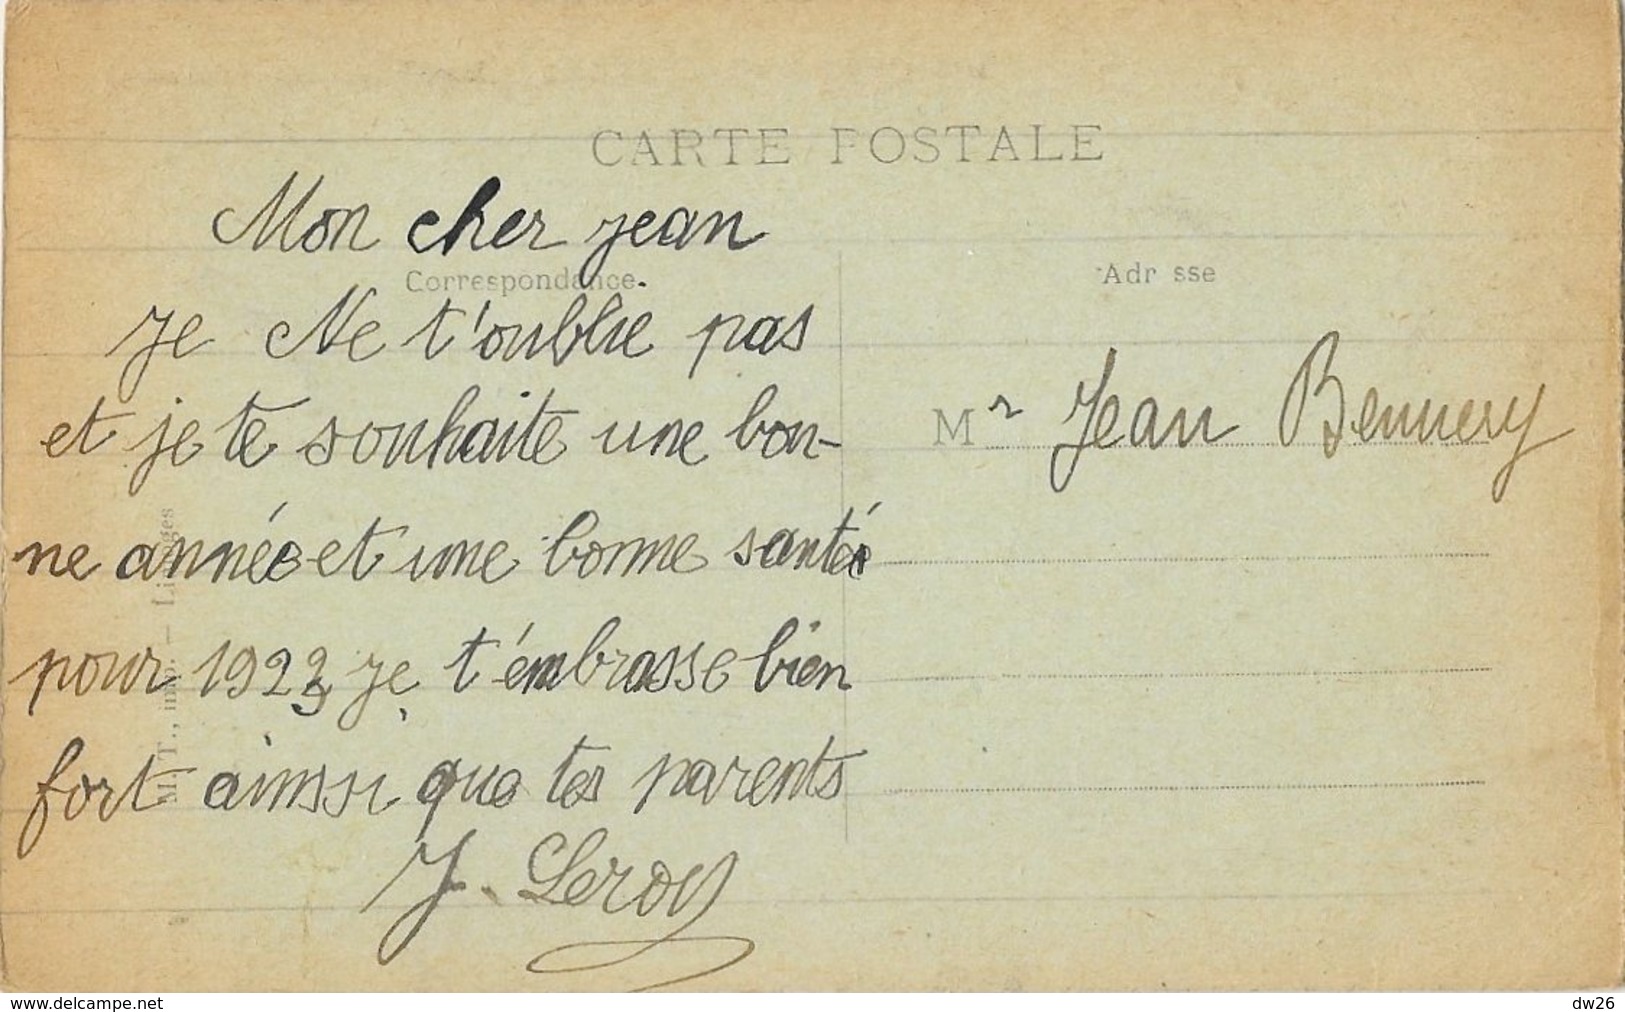 CARTE POSTALE
Mon cher jean
Correspondance.
je Ne t'oublie pas
et je te souhaite une bon-
ne année et une bonne santée
pour 1923 je t'émbrasse bien
fort ainssi que tes parents
J. Leroy
Adr sse
Mr Jean Bennery
M. T., imp. — Limoges
www.delcampe.net
dw26